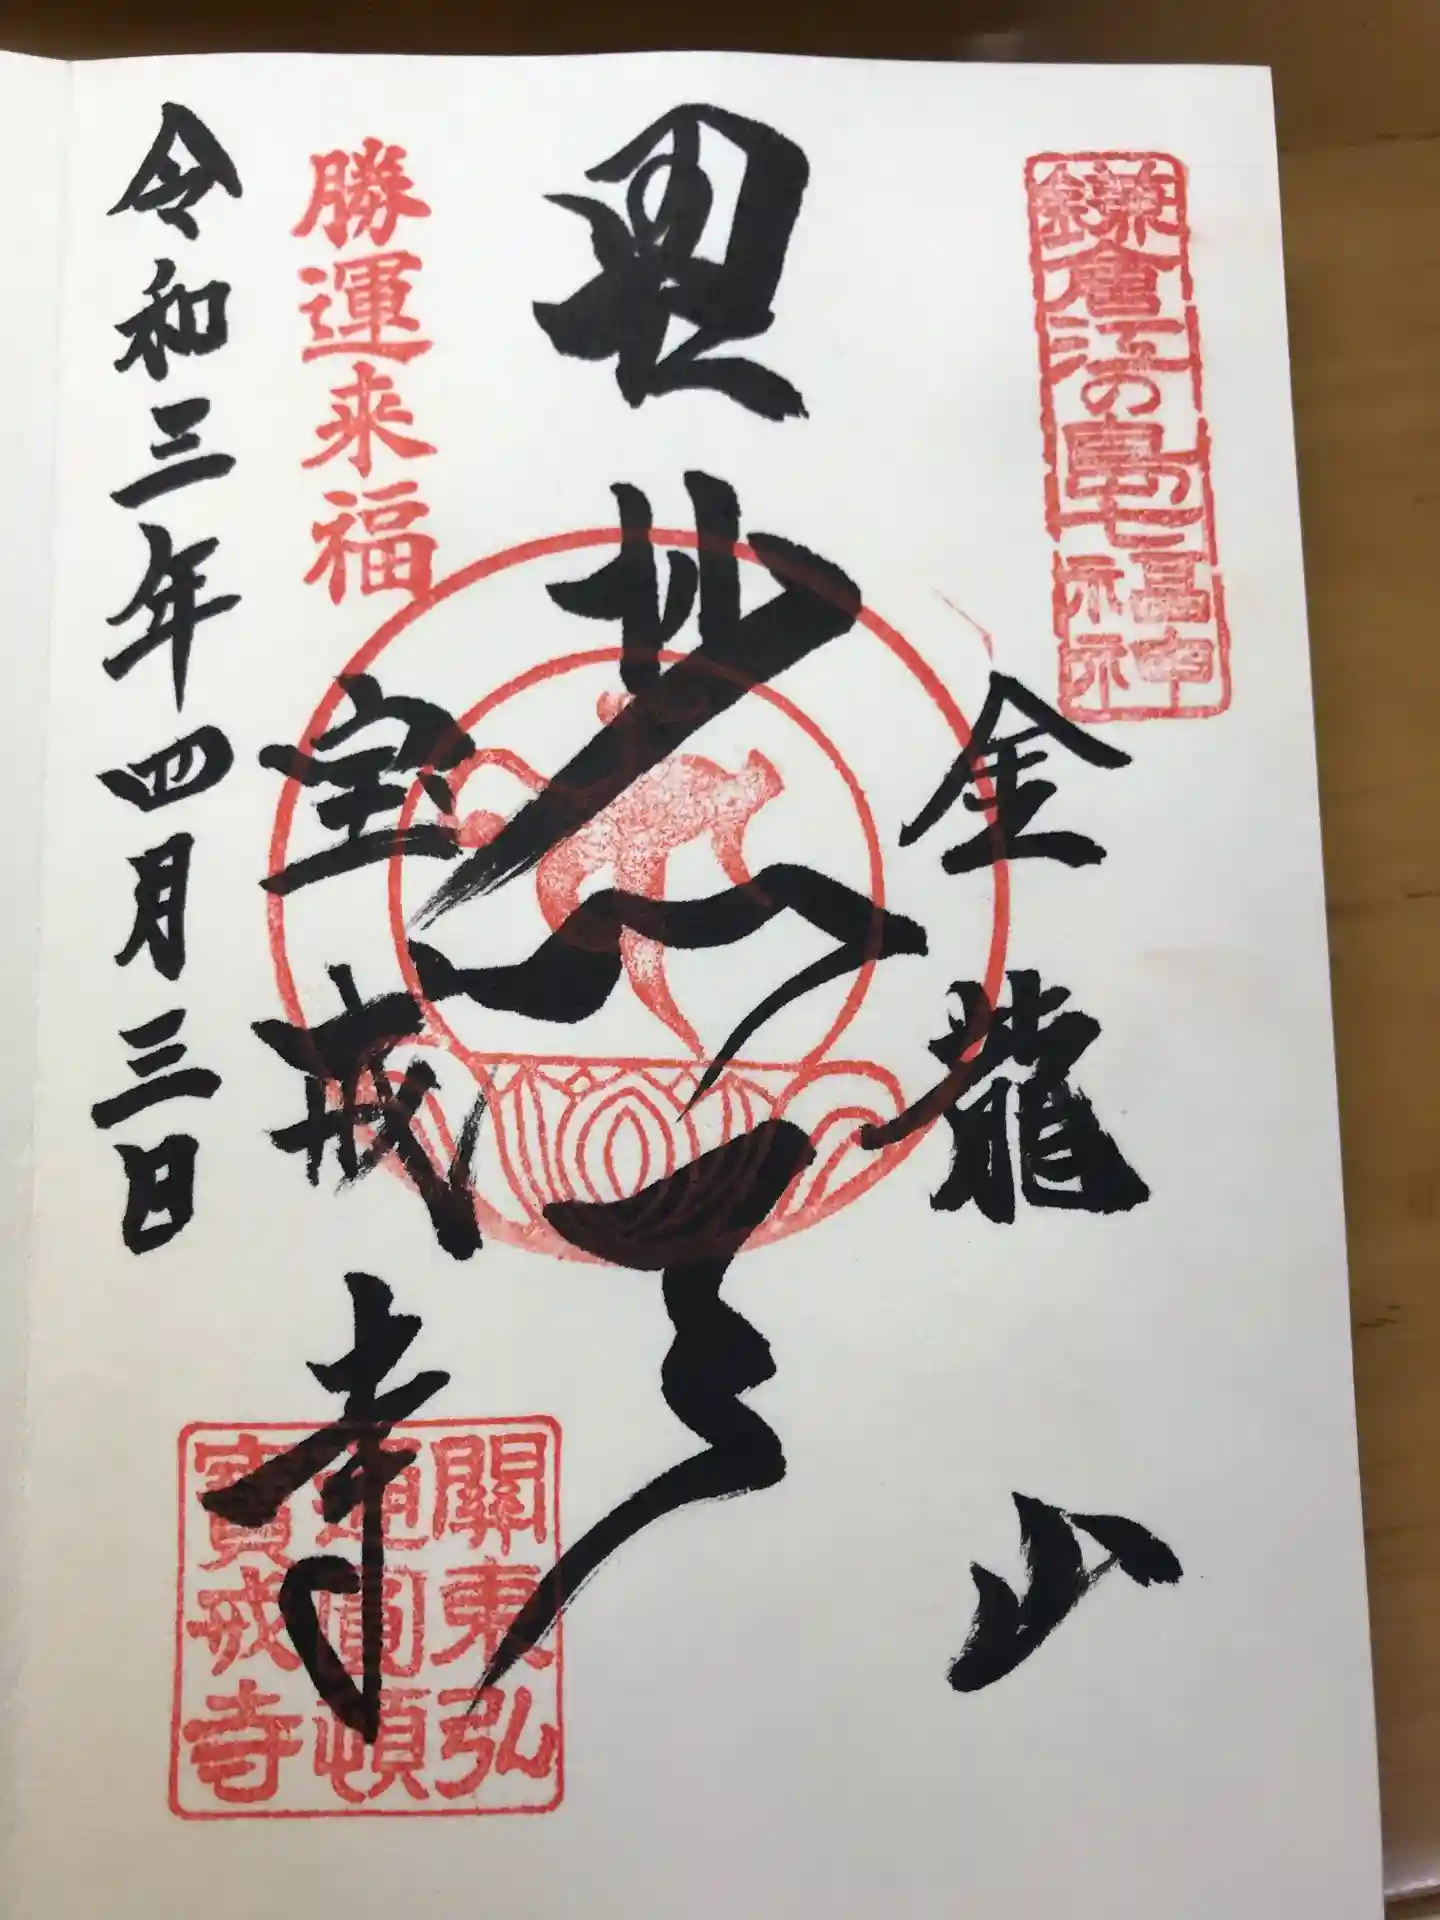 鎌倉江の島七福神
金龍山
毘沙門天
勝運来福
宝戒寺
關東弘
通圓頓
寶戒寺
令和三年四月三日